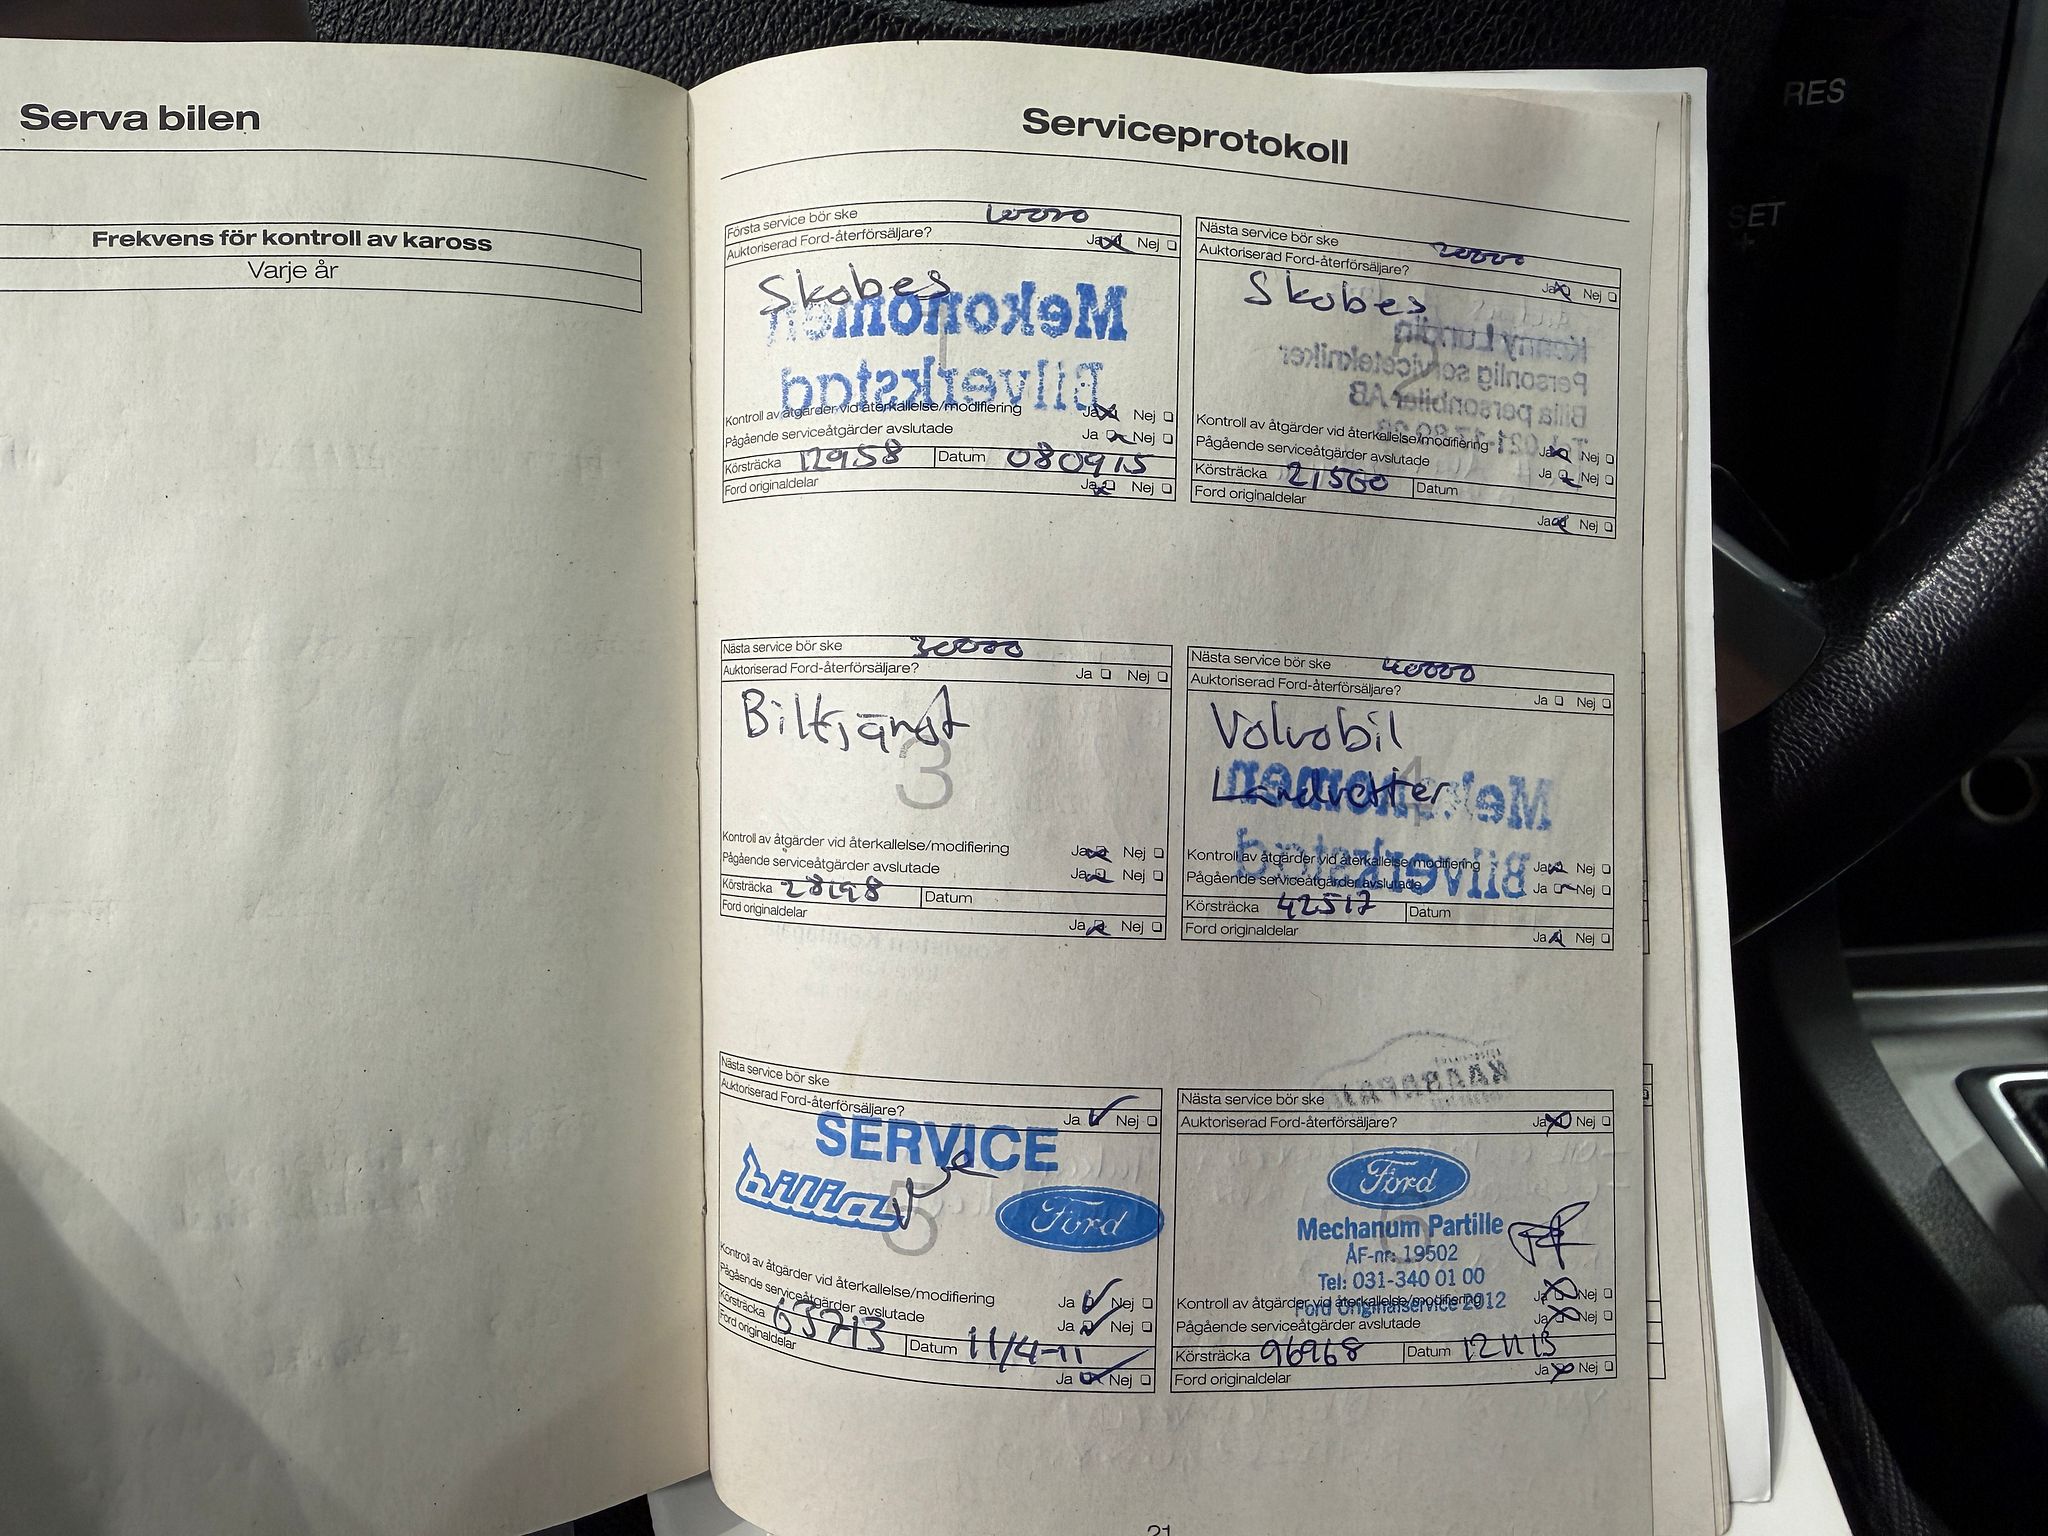 Serva bilen
Frekvens för kontroll av kaross
Varje år
Serviceprotokoll
Första service bör ske
Auktoriserad Ford-återförsäljare? Ja Nej
Skobes
1
Mekonomen
Bilverkstad
Kontroll av åtgärder vid återkallelse/modifiering Ja Nej
Pågående serviceåtgärder avslutade Ja Nej
Körsträcka 12958 Datum 080915
Ford originaldelar Ja Nej
Nästa service bör ske 20000
Auktoriserad Ford-återförsäljare? Ja Nej
Skobes
2
Konny Lundin
Personlig servicetekniker
Bilia personbilar AB
Kontroll av åtgärder vid återkallelse/modifiering Ja Nej
Pågående serviceåtgärder avslutade Ja Nej
Körsträcka 21560 Datum
Ford originaldelar Ja Nej
Nästa service bör ske 30000
Auktoriserad Ford-återförsäljare? Ja Nej
Biltjänst
3
Kontroll av åtgärder vid återkallelse/modifiering Ja Nej
Pågående serviceåtgärder avslutade Ja Nej
Körsträcka 28198 Datum
Ford originaldelar Ja Nej
Nästa service bör ske 40000
Auktoriserad Ford-återförsäljare? Ja Nej
Volvobil
Landvetter
4
Mekonomen
Bilverkstad
Kontroll av åtgärder vid återkallelse/modifiering Ja Nej
Pågående serviceåtgärder avslutade Ja Nej
Körsträcka 42517 Datum
Ford originaldelar Ja Nej
Nästa service bör ske
Auktoriserad Ford-återförsäljare? Ja Nej
SERVICE
bilia
5
Ford
Kontroll av åtgärder vid återkallelse/modifiering Ja Nej
Pågående serviceåtgärder avslutade Ja Nej
Körsträcka 63713 Datum 11/4-11
Ford originaldelar Ja Nej
Nästa service bör ske
Auktoriserad Ford-återförsäljare? Ja Nej
Ford
6
Mechanum Partille
ÅF-nr: 19502
Tel: 031-340 01 00
Ford Originalservice 2012
Kontroll av åtgärder vid återkallelse/modifiering Ja Nej
Pågående serviceåtgärder avslutade Ja Nej
Körsträcka 96968 Datum 121115
Ford originaldelar Ja Nej
21
RES
SET
+